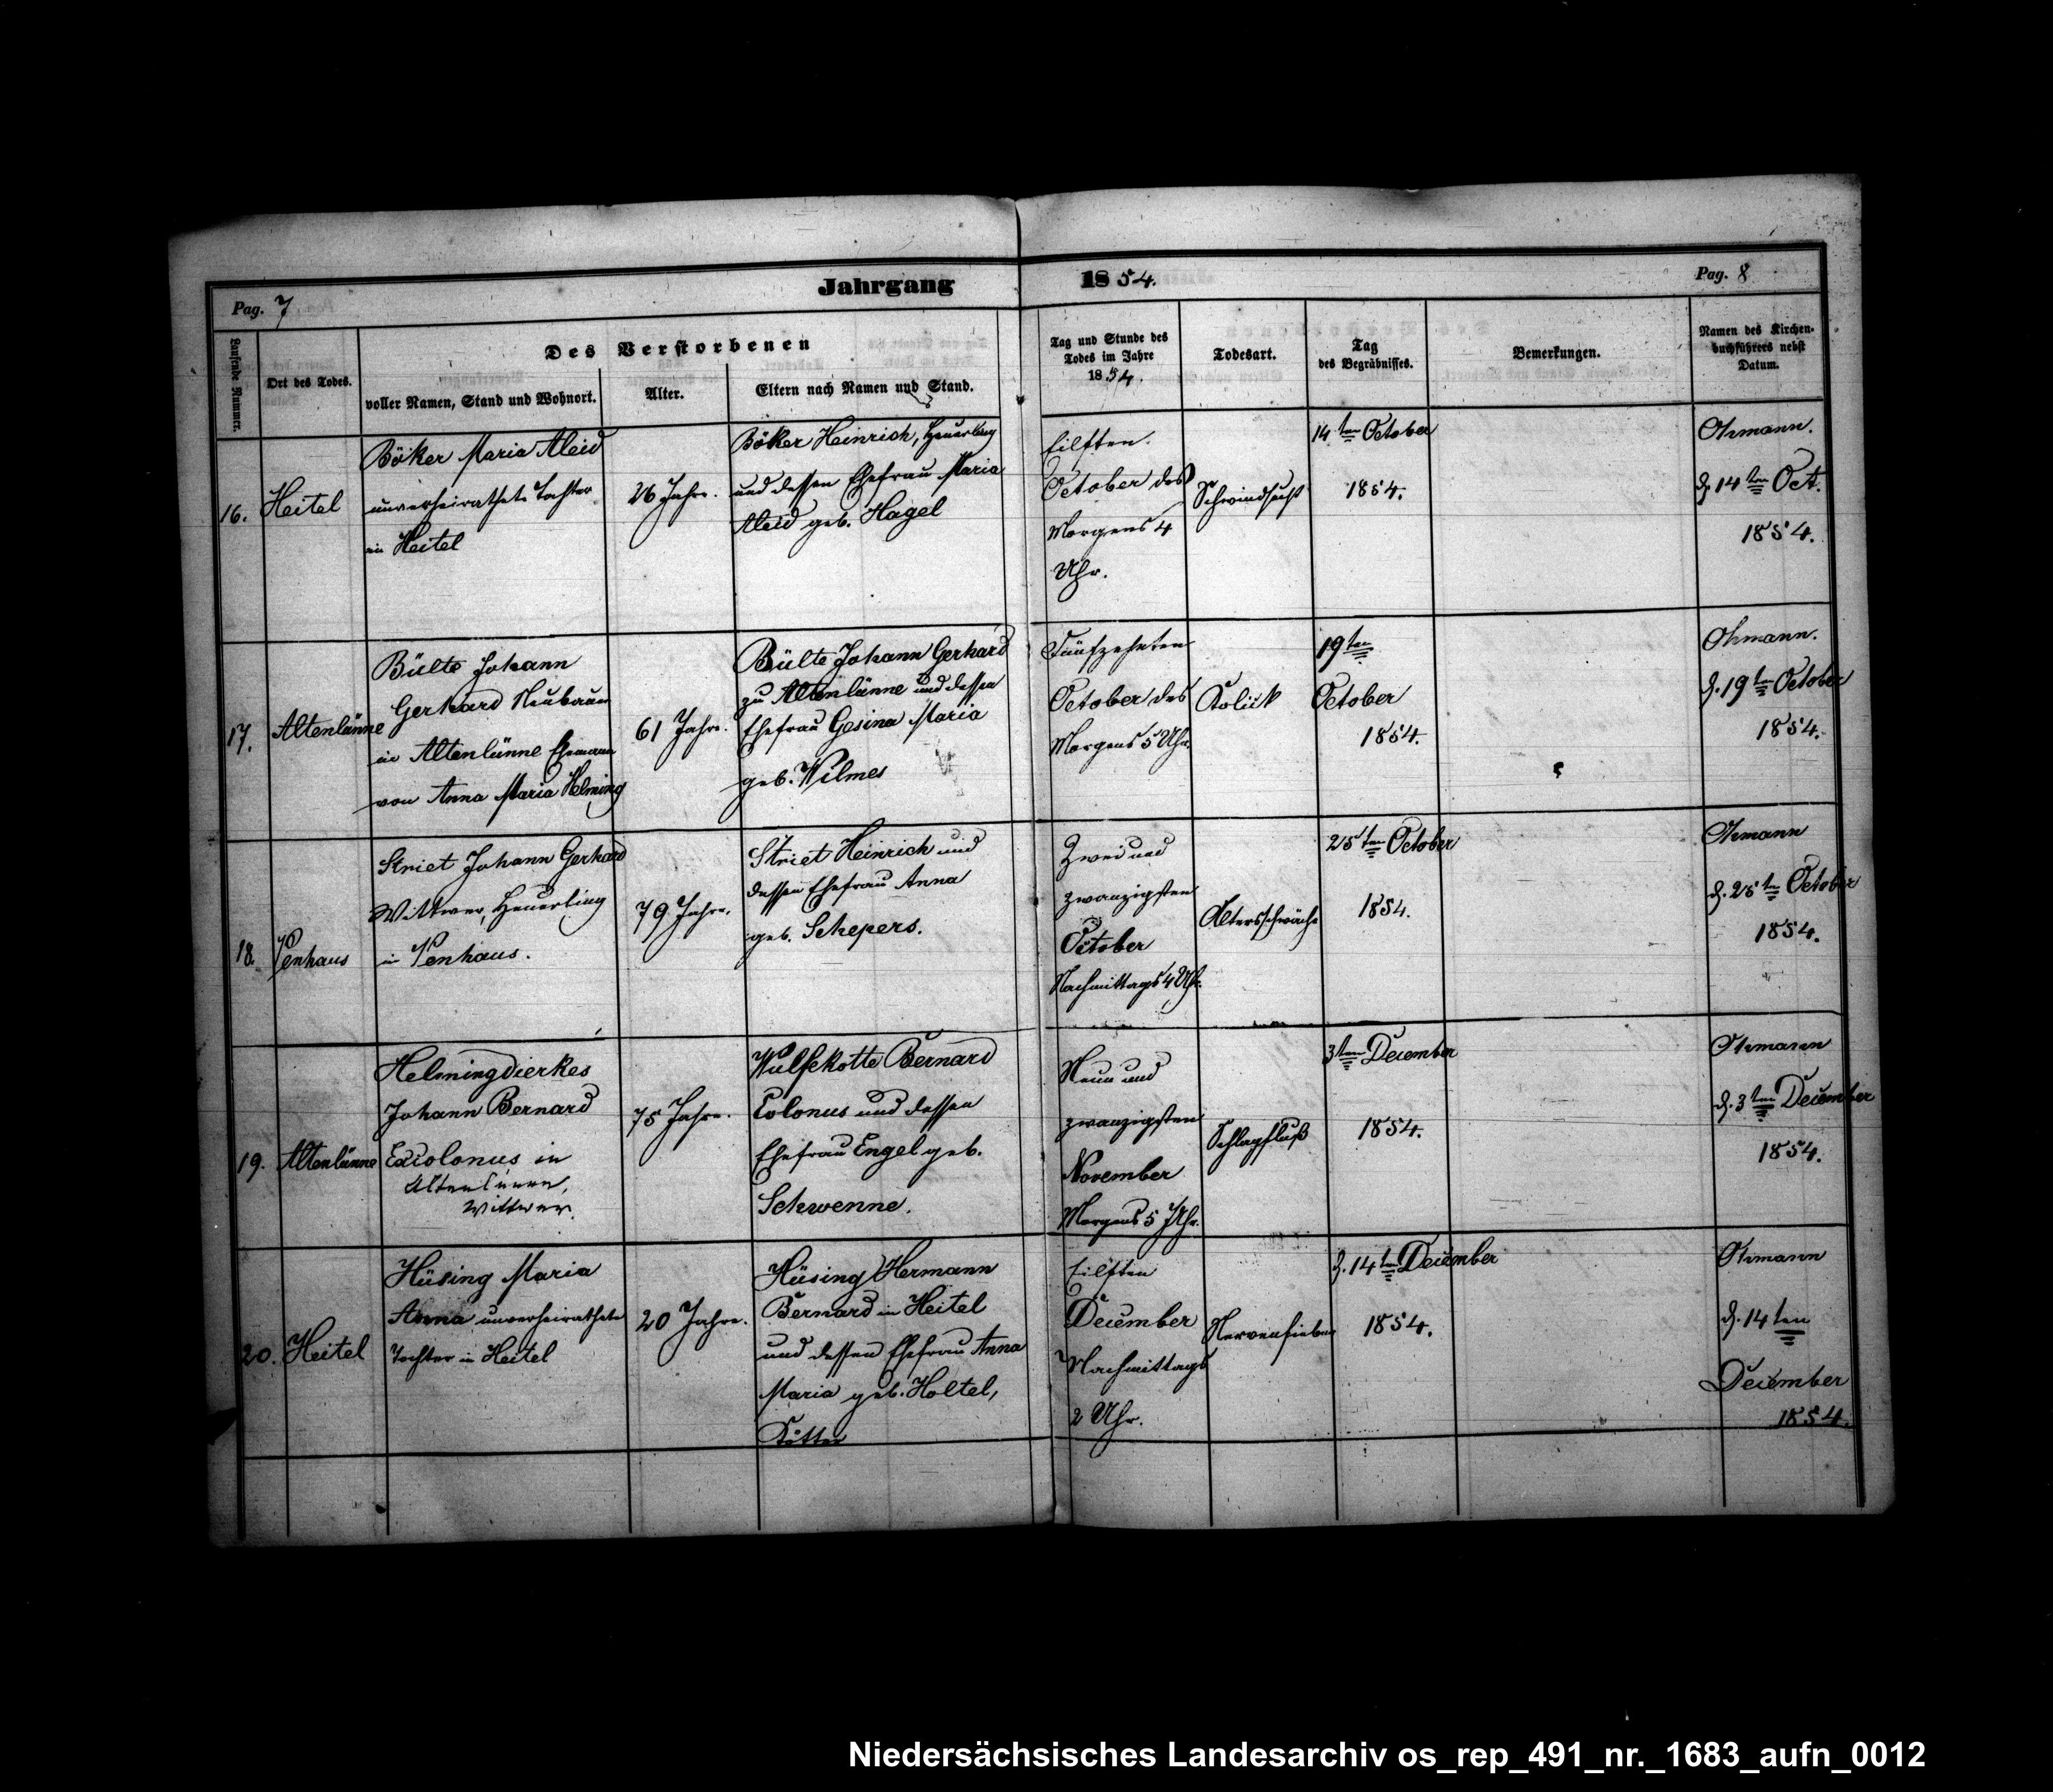 Pag. 7
Jahrgang 1854.
Pag. 8
Laufende Nummer.
Ort des Todes.
Des Verstorbenen
voller Namen, Stand und Wohnort.
Alter.
Eltern nach Namen und Stand.
Tag und Stunde des
Todes im Jahre
1854.
Todesart.
Tag
des Begräbnisses.
Bemerkungen.
Namen des Kirchen-
buchführers nebst
Datum.
16.
Heitel
Böker Maria Aleid
unverheirathete Tochter
in Heitel
26 Jahre.
Böker Heinrich, Heuerling
und dessen Ehefrau Maria
Aleid geb. Hagel
Eilften
October des
Morgens 4
Uhr.
Schwindsucht
14ten October
1854.
Otmann.
d. 14ten Oct.
1854.
17.
Altenlünne
Bülte Johann
Gerhard Neubauer
in Altenlünne Ehemann
von Anna Maria Helming
61 Jahre.
Bülte Johann Gerhard
zu Altenlünne und dessen
Ehefrau Gesina Maria
geb. Wilmes
Fünfzehnten
October des
Morgens 5 Uhr.
Kolick
19ten
October
1854.
Otmann.
d. 19ten October
1854.
18.
Venhaus
Striet Johann Gerhard
Wittwer, Heuerling
in Venhaus.
79 Jahre.
Striet Heinrich und
dessen Ehefrau Anna
geb. Schepers.
Zwei und
zwanzigsten
October
Nachmittags 4 Uhr.
Altersschwäche
25ten October
1854.
Otmann
d. 25ten October
1854.
19.
Altenlünne
Helmingdierkes
Johann Bernard
Excolonus in
Altenlünne,
Wittwer.
75 Jahre.
Wulfekotte Bernard
Colonus und dessen
Ehefrau Engel geb.
Schwenne.
Neun und
zwanzigsten
November
Morgens 5 Uhr.
Schlagfluß
3ten December
1854.
Otmann
d. 3ten December
1854.
20.
Heitel
Hüsing Maria
Anna unverheirathete
Tochter in Heitel
20 Jahre.
Hüsing Hermann
Bernard in Heitel
und dessen Ehefrau Anna
Maria geb. Holtel,
Kötter
Eilften
December
Nachmittags
2 Uhr.
Nervenfieber
d. 14ten December
1854.
Otmann
d. 14ten
December
1854.
Niedersächsisches Landesarchiv os_rep_491_nr._1683_aufn_0012